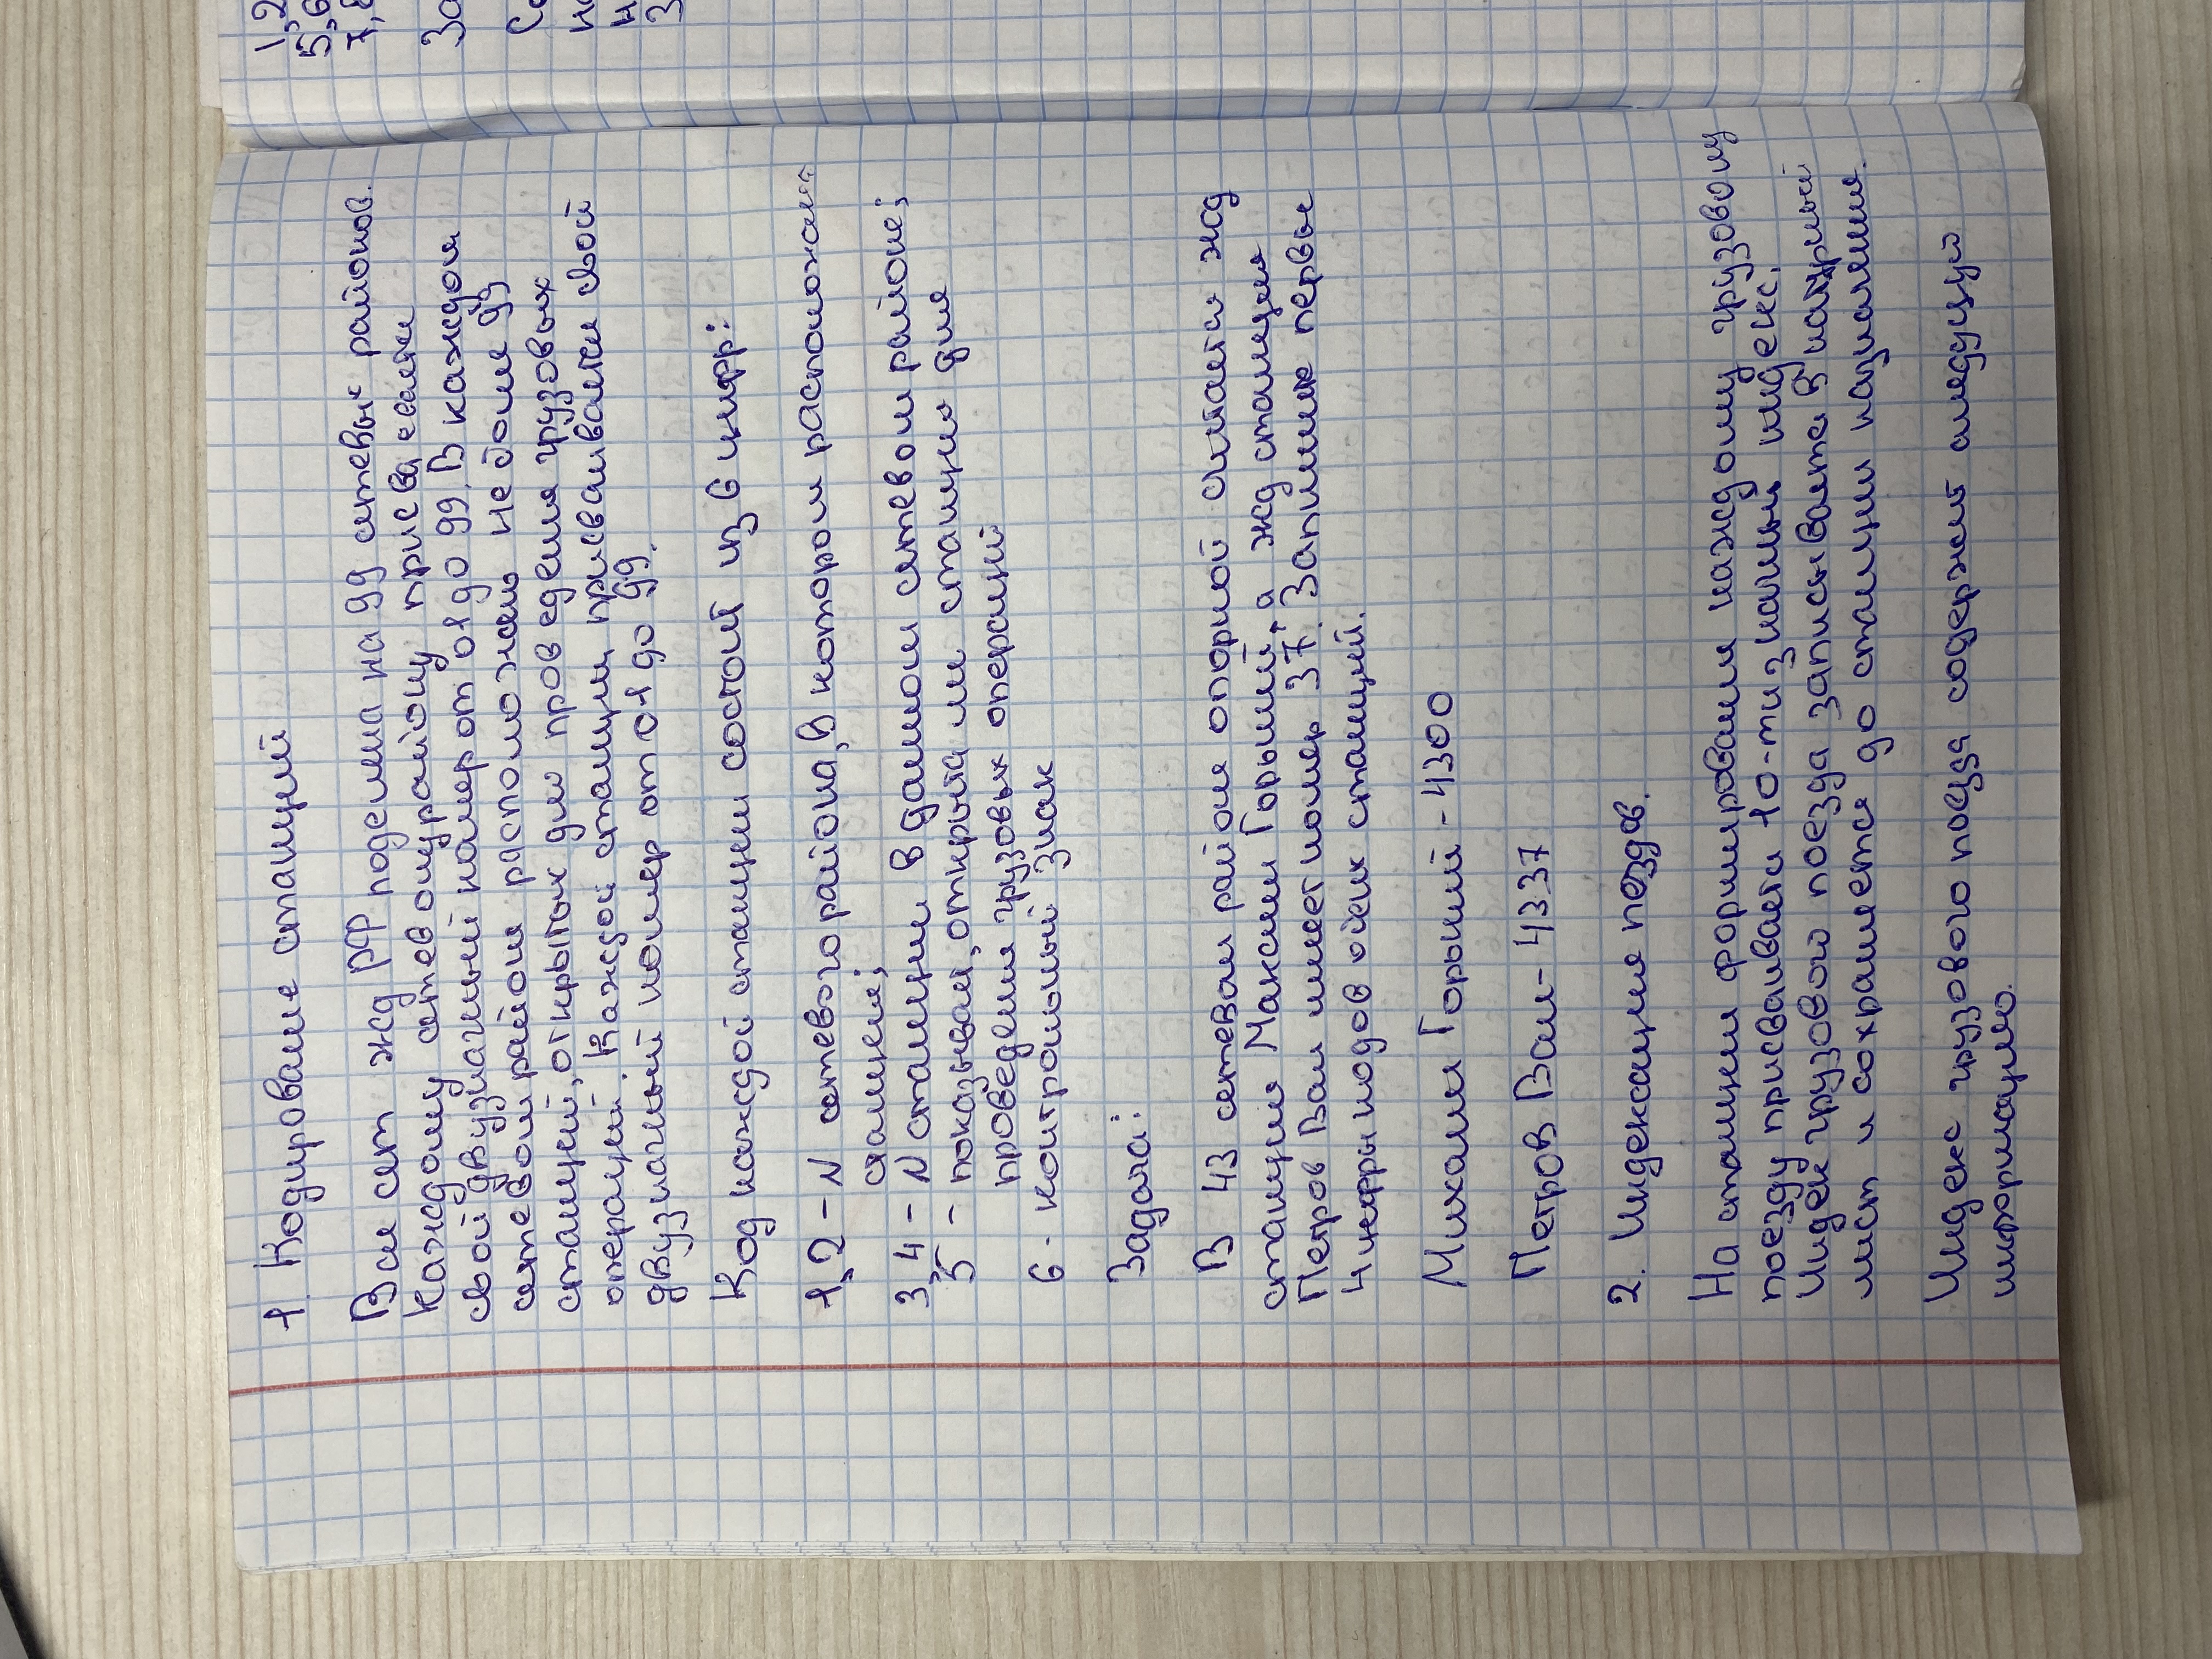 1. Кодирование станций
Вся сеть жд РФ поделена на 99 сетевых районов.
Каждому сетевому району присваевается
свой двузначный номер от 01 до 99. В каждом
сетевом районе расположено не более 99
станций, открытых для проведения грузовых
операций. Каждой станции, присваивается свой
двузначный номер от 01 до 99.
Код каждой станции состоит из 6 цифр:
1,2 - N сетевого района, в котором расположена
станция;
3,4 - N станции в данном сетевом районе;
5 - показывает, открыта ли станция для
проведения грузовых операций
6 - контрольный знак
Задача:
В 43 сетевом районе опорной является жд
станция Максим Горький, а жд станция
Петров Вал имеет номер 37. Запишите первые
4 цифры кодов обеих станций.
Михаил Горький - 4300
Петров Вал - 4337
2. Индексация поездов.
На станции формирования каждому грузовому
поезду присваивается 10-тизначный индекс.
Индекс грузового поезда записывается в натурный
лист и сохраняется до станции назначения.
Индекс грузового поезда содержит следующую
информацию.
1,2
5,6
7,8
За